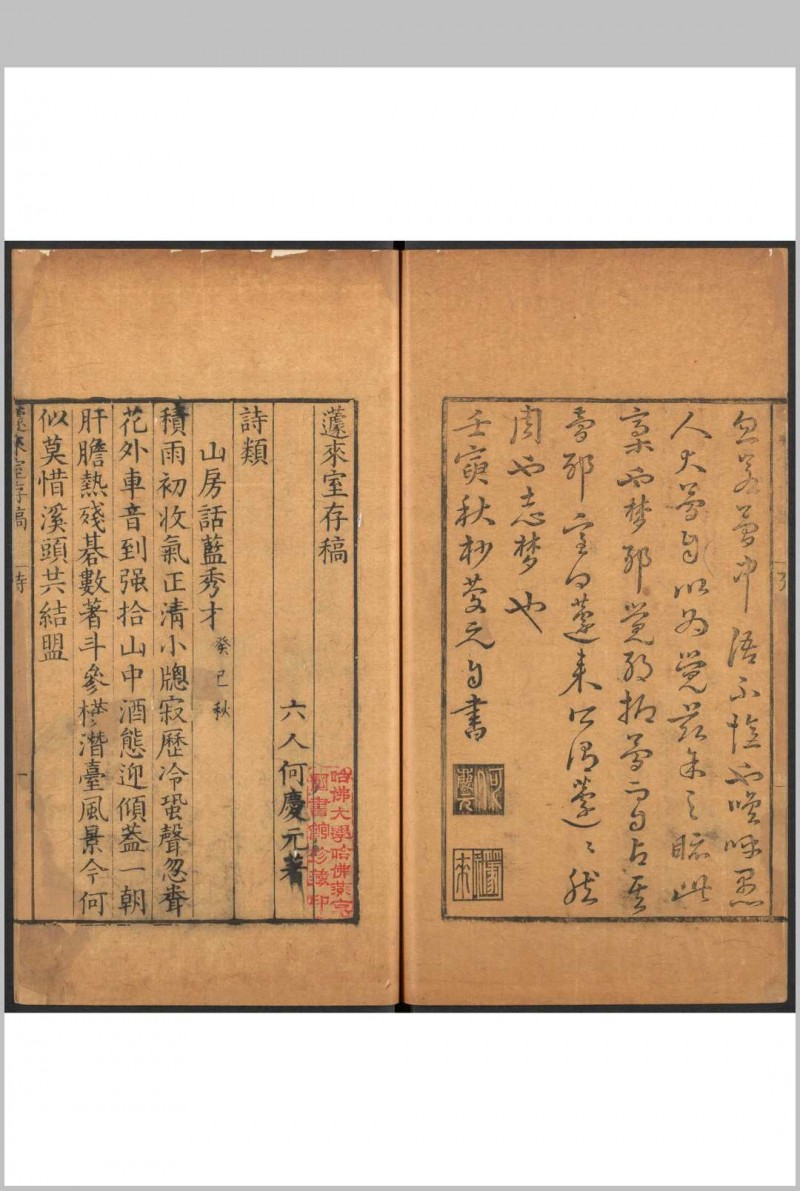 忽若夢中語不也嗟呼愚
人大夢自以為覺茲余之睹此
稾也夢耶覺耶抑夢而自占其
夢耶室曰蘧來以謂蘧蘧然
周也志夢也
壬寅秋杪慶元自書
蘧來室存稿
六人何慶元著
哈佛大學哈佛燕京
圖書館珍藏印
詩類
山房話藍秀才 癸巳秋
積雨初收氣正清小牕寂歷冷蛩聲忽
花外車音到强拾山中酒態迎傾蓋一朝
肝膽熱殘碁數著斗參横潛臺風景今何
似莫惜溪頭共結盟
蘧來室存稿 詩 一